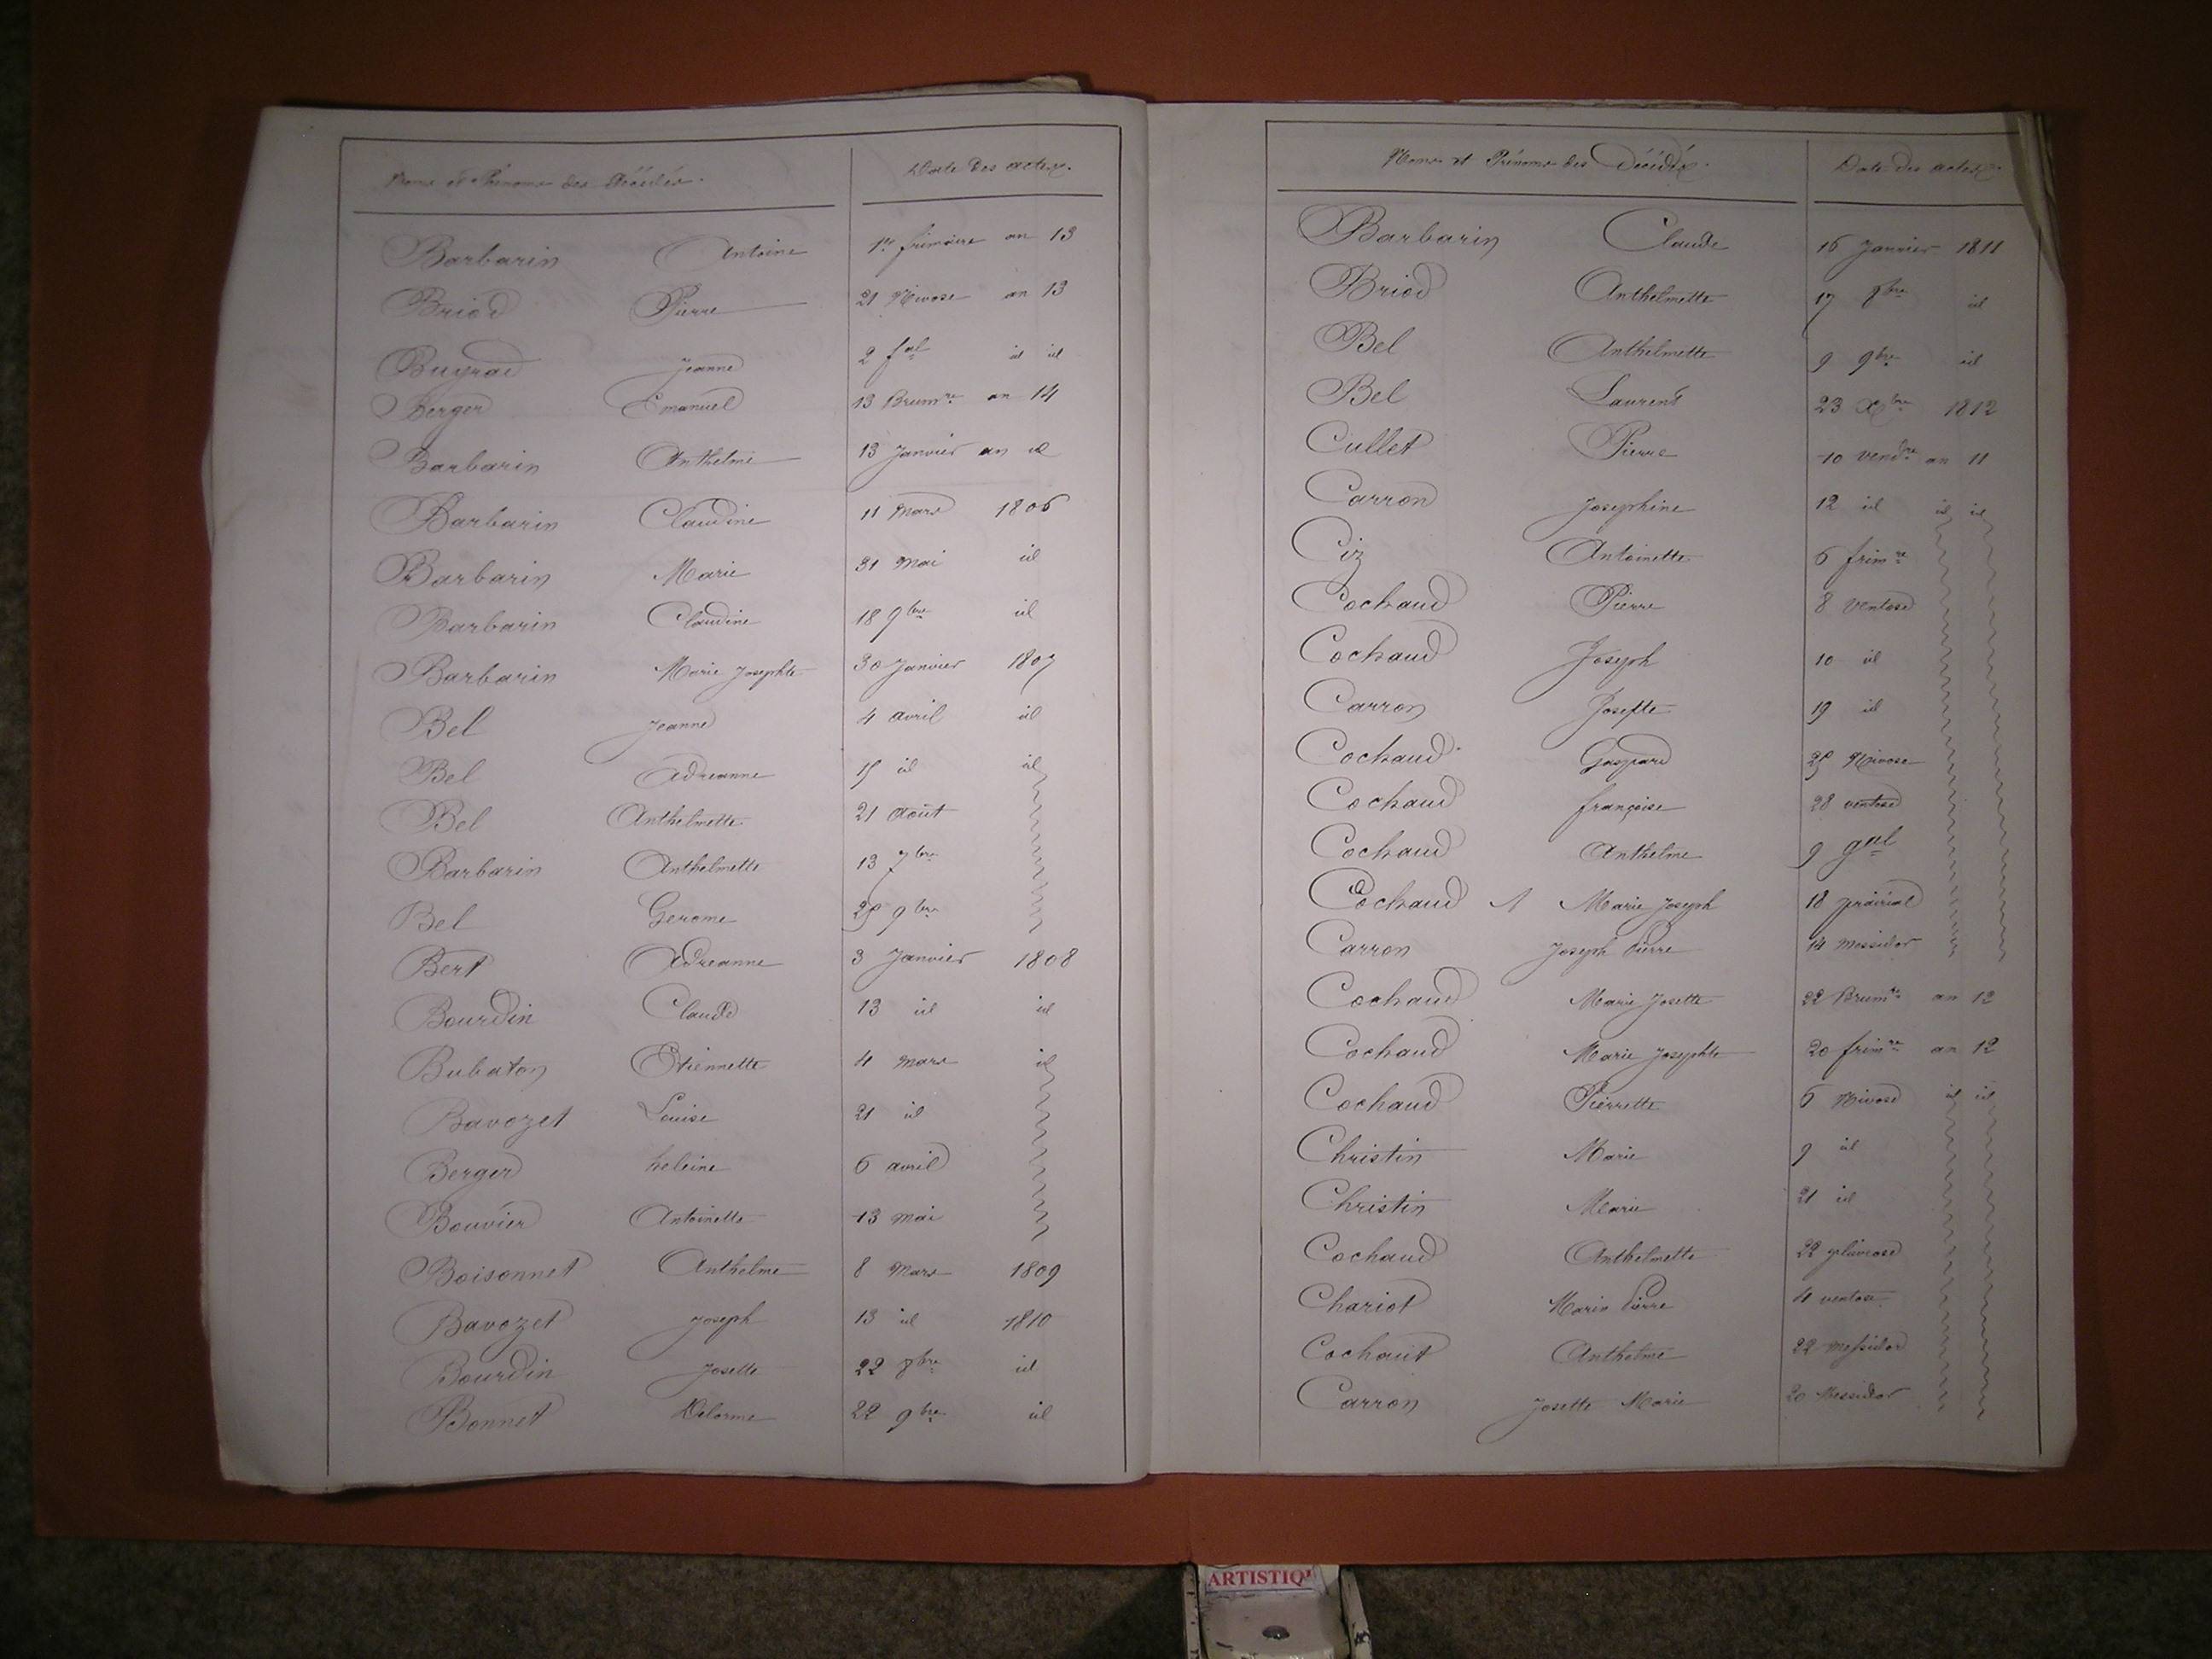 Noms et Prénoms des Décédés. Date des actes.
Barbarin Antoine 1er frimaire an 13
Briod Pierre 21 Nivose an 13
Bugrad Jeanne 2 fal id id
Berger Emanuel 13 Brumre an 14
Barbarin Anthelme 13 Janvier an id
Barbarin Claudine 11 Mars 1806
Barbarin Marie 31 Mai id
Barbarin Claudine 18 9bre id
Barbarin Marie Josephte 30 Janvier 1807
Bel Jeanne 4 avril id
Bel Adreanne 15 id id
Bel Anthelmette 21 Août
Barbarin Anthelmette 13 7bre
Bel Gerome 25 9bre
Bert Adreanne 3 Janvier 1808
Bourdin Claude 13 id id
Bubaton Etiennette 4 Mars id
Bavozet Louise 21 id
Berger heleine 6 avril
Bouvier Antoinette 13 Mai
Boisonnet Anthelme 8 Mars 1809
Bavozet Joseph 13 id 1810
Bourdin Josette 22 8bre id
Bonnet Delorme 22 9bre id
Noms et Prénoms des Décédés. Date des actes.
Barbarin Claude 16 Janvier 1811
Briod Anthelmette 17 8bre id
Bel Anthelmette 9 9bre id
Bel Laurent 23 Xbre 1812
Cullet Pierre 10 vendre an 11
Carron Josephine 12 id id id
Ciz Antoinette 6 frimre
Cochaud Pierre 8 Ventose
Cochaud Joseph 10 id
Carron Josette 19 id
Cochaud Gaspard 25 Nivose
Cochaud françoise 28 ventose
Cochaud Anthelme 9 gal
Cochaud Marie Joseph 18 prairial
Carron Joseph Pierre 14 Messidor
Cochaud Marie Josette 22 Brumre an 12
Cochaud Marie Josephte 20 frimre an 12
Cochaud Pierrette 6 Nivose id id
Christin Marie 9 id
Christin Marie 21 id
Cochaud Anthelmette 22 pluviose
Chariot Marie Pierre 4 ventose
Cochaut Anthelme 22 Messidor
Carron Josette Marie 20 Messidor
ARTISTIQ